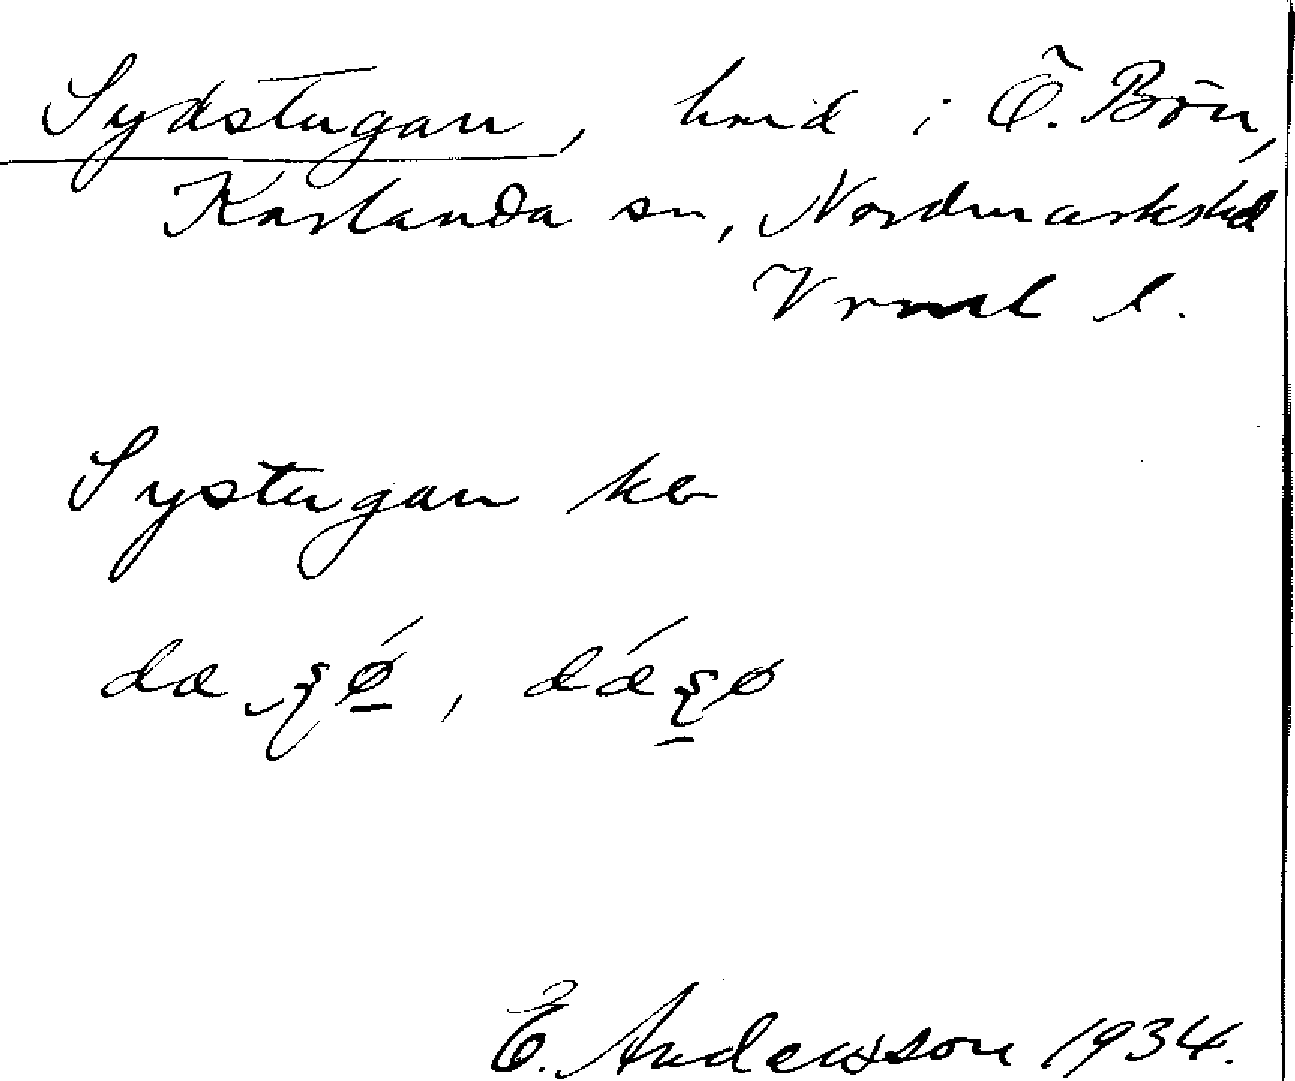 Sydstugan, hmd i Ö. Bön,
Karlanda sn, Nordmarkshd
Vrml l.
Systugan ka
E. Andersson 1934.